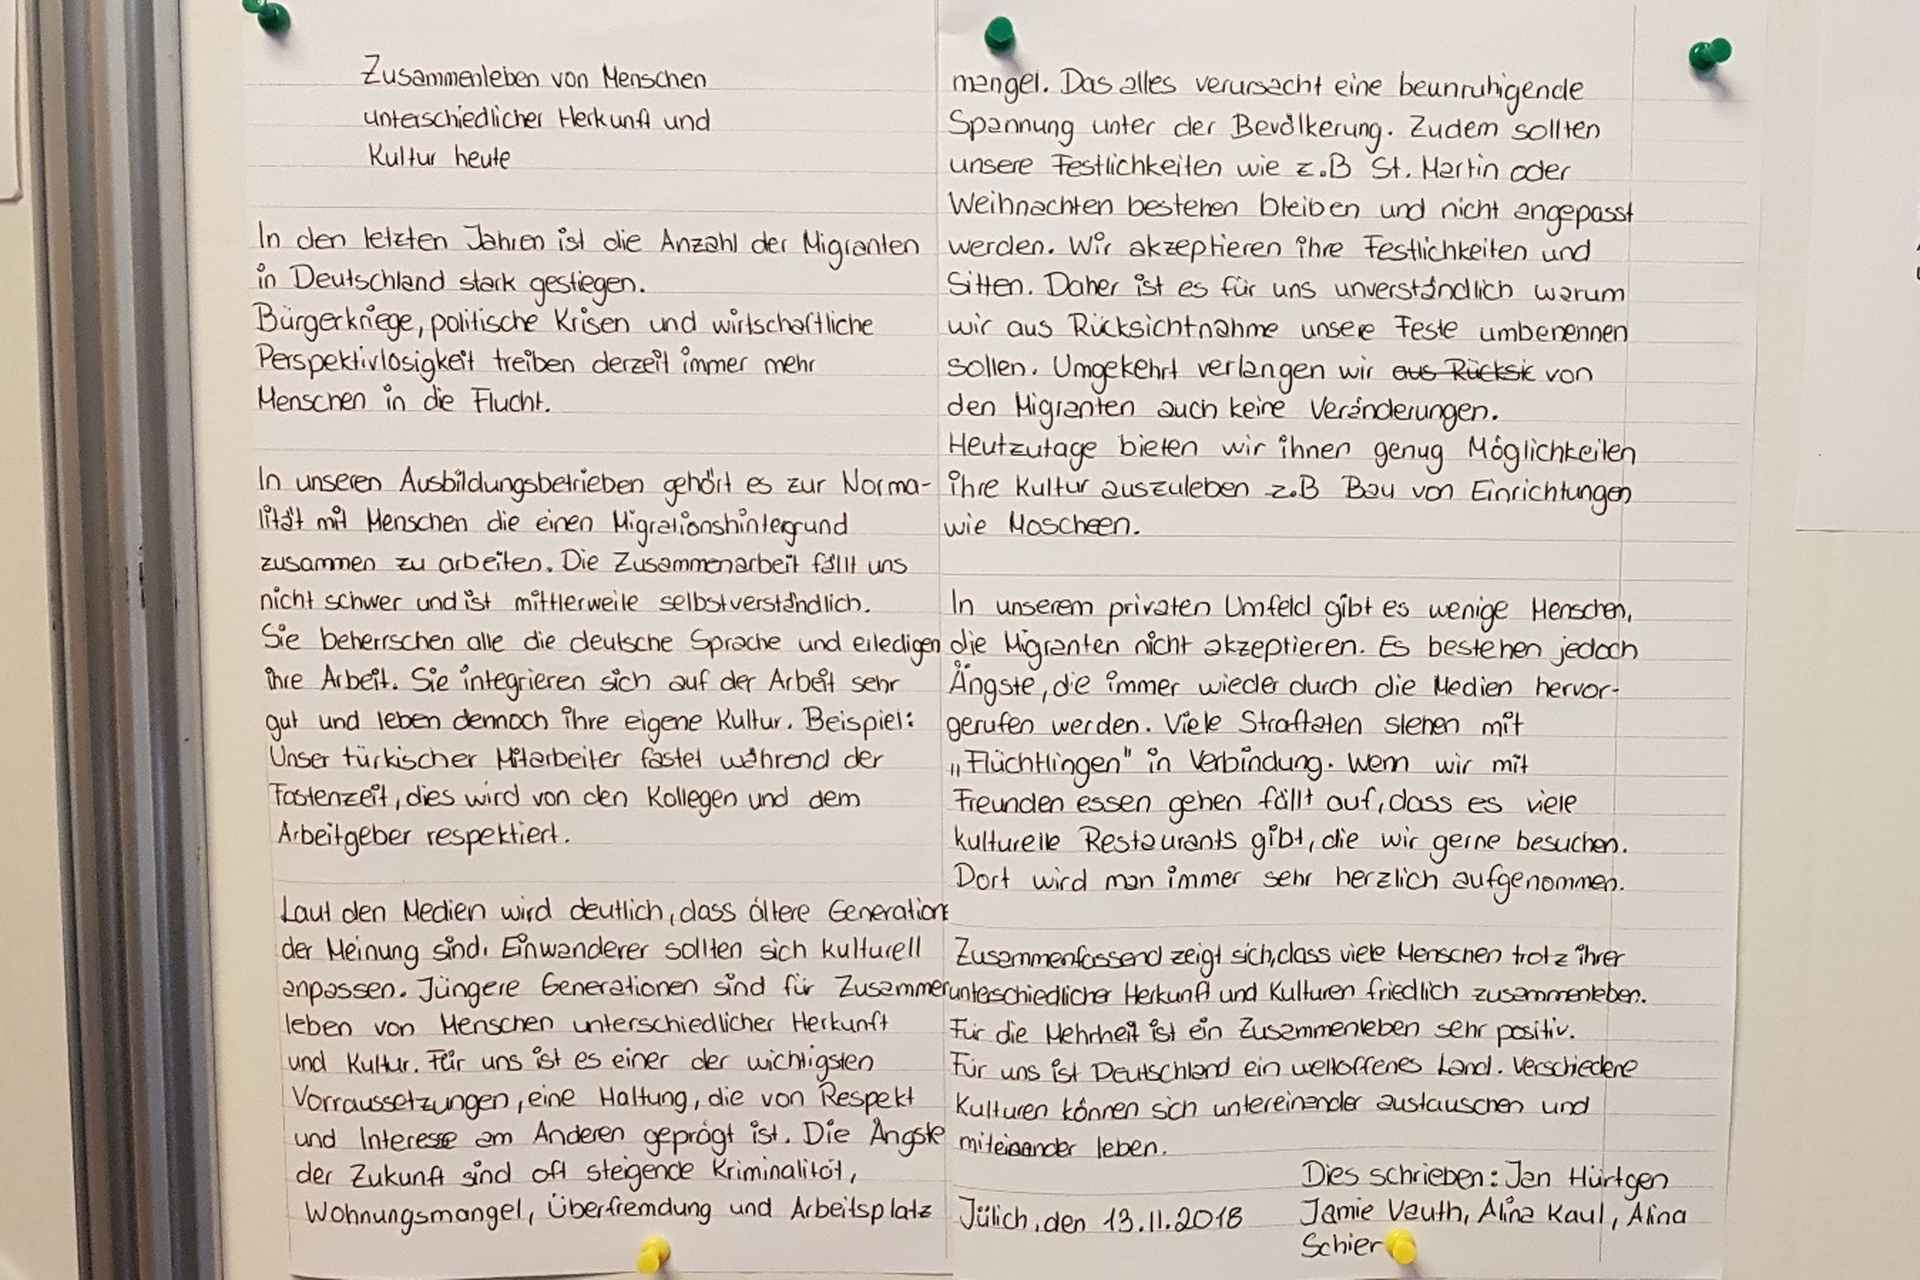 Zusammenleben von Menschen
unterschiedlicher Herkunft und
Kultur heute
In den letzten Jahren ist die Anzahl der Migranten
in Deutschland stark gestiegen.
Bürgerkriege, politische Krisen und wirtschaftliche
Perspektivlosigkeit treiben derzeit immer mehr
Menschen in die Flucht.
In unseren Ausbildungsbetrieben gehört es zur Norma-
lität mit Menschen die einen Migrationshintergrund
zusammen zu arbeiten. Die Zusammenarbeit fällt uns
nicht schwer und ist mittlerweile selbstverständlich.
Sie beherrschen alle die deutsche Sprache und erledigen
ihre Arbeit. Sie integrieren sich auf der Arbeit sehr
gut und leben dennoch ihre eigene Kultur. Beispiel:
Unser türkischer Mitarbeiter fastet während der
Fastenzeit, dies wird von den Kollegen und dem
Arbeitgeber respektiert.
Laut den Medien wird deutlich, dass ältere Generation
der Meinung sind, Einwanderer sollten sich kulturell
anpassen. Jüngere Generationen sind für Zusammen
leben von Menschen unterschiedlicher Herkunft
und Kultur. Für uns ist es einer der wichtigsten
Vorraussetzungen, eine Haltung, die von Respekt
und Interesse am Anderen geprägt ist. Die Ängste
der Zukunft sind oft steigende Kriminalität,
Wohnungsmangel, Überfremdung und Arbeitsplatz
mangel. Das alles verursacht eine beunruhigende
Spannung unter der Bevölkerung. Zudem sollten
unsere Festlichkeiten wie z.B St. Martin oder
Weihnachten bestehen bleiben und nicht angepasst
werden. Wir akzeptieren ihre Festlichkeiten und
Sitten. Daher ist es für uns unverständlich warum
wir aus Rücksichtnahme unsere Feste umbenennen
sollen. Umgekehrt verlangen wir aus Rücksic von
den Migranten auch keine Veränderungen.
Heutzutage bieten wir ihnen genug Möglichkeiten
ihre Kultur auszuleben z.B Bau von Einrichtungen
wie Moscheen.
In unserem privaten Umfeld gibt es wenige Menschen,
die Migranten nicht akzeptieren. Es bestehen jedoch
Ängste, die immer wieder durch die Medien hervor-
gerufen werden. Viele Straftaten stehen mit
„Flüchtlingen" in Verbindung. Wenn wir mit
Freunden essen gehen fällt auf, dass es viele
kulturelle Restaurants gibt, die wir gerne besuchen.
Dort wird man immer sehr herzlich aufgenommen.
Zusammenfassend zeigt sich, dass viele Menschen trotz ihrer
unterschiedlicher Herkunft und Kulturen friedlich zusammenleben.
Für die Mehrheit ist ein Zusammenleben sehr positiv.
Für uns ist Deutschland ein weltoffenes Land. Verschiedene
Kulturen können sich untereinander austauschen und
miteinander leben.
Dies schrieben: Jan Hürtgen
Jülich, den 13.11.2018 Jamie Vauth, Alina Kaul, Alina
Schier